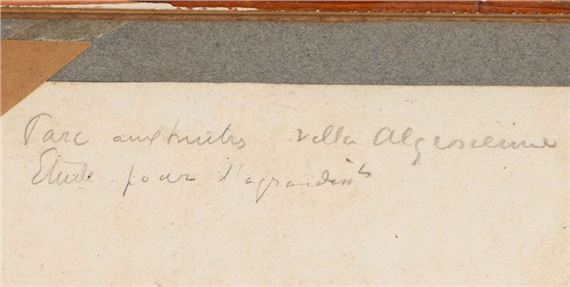 Parc aux huîtres villa Algérienne
Etude pour l'agrandis^ts